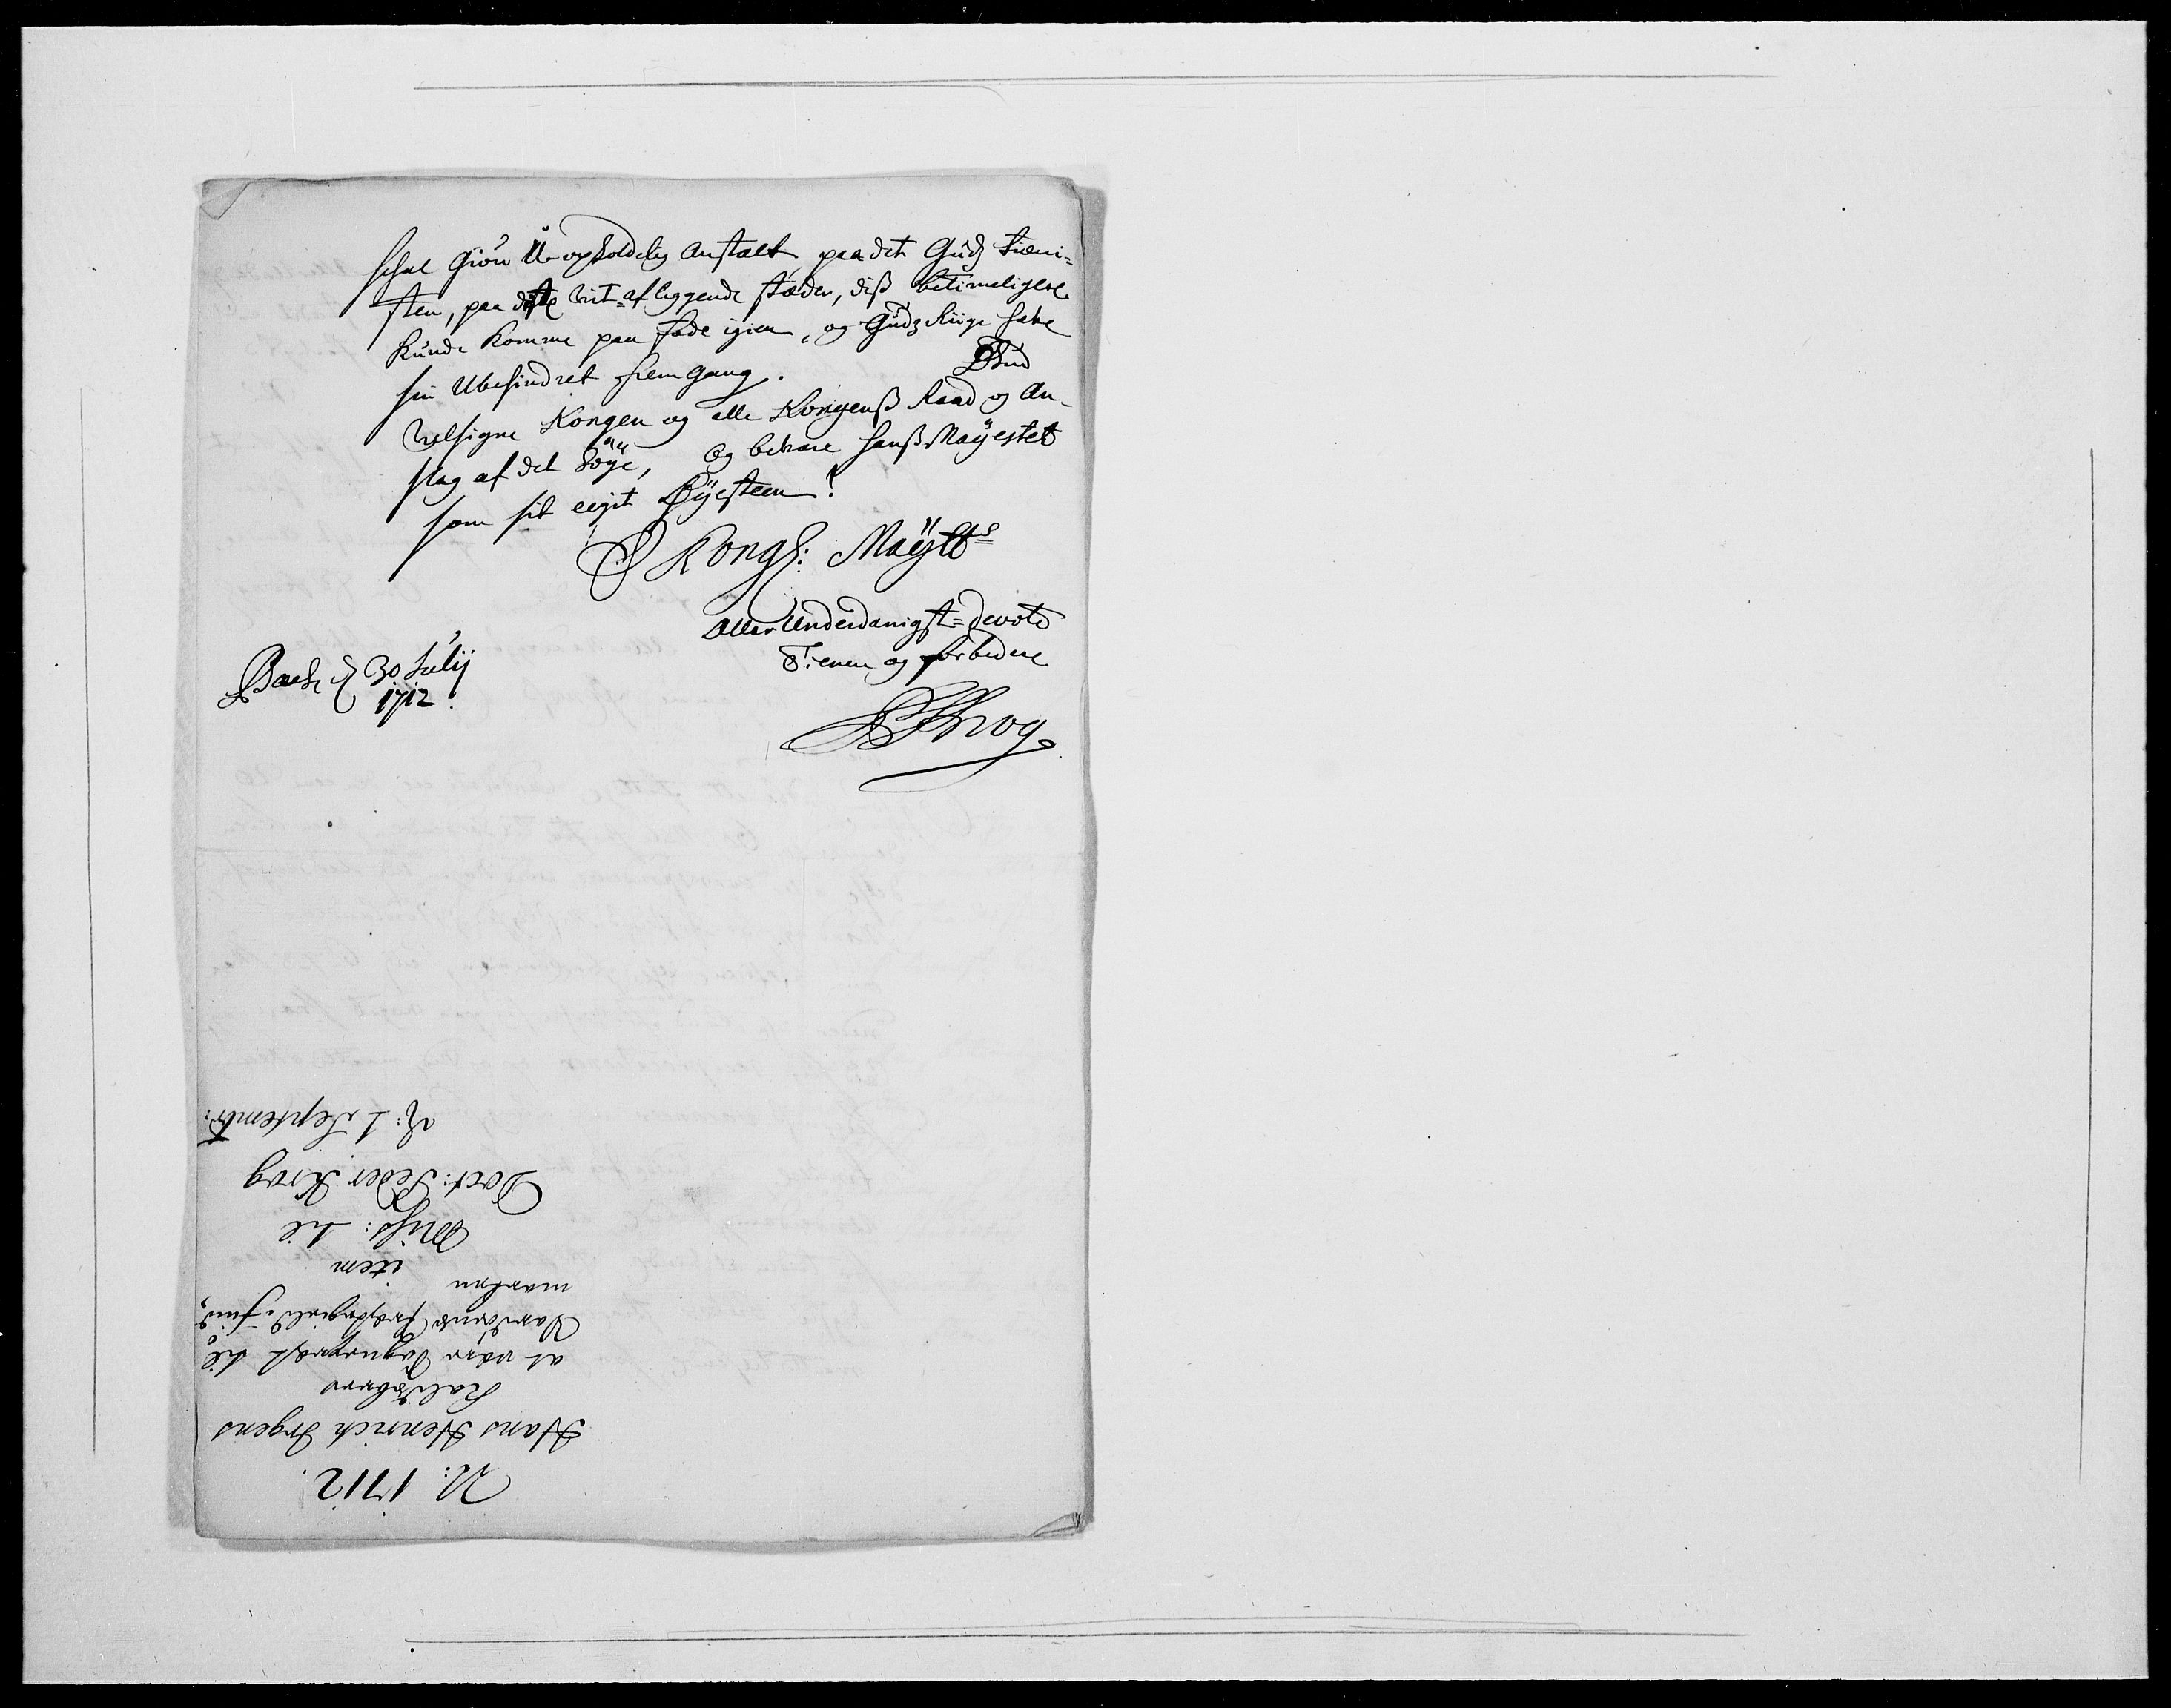 schal giøre U-opholdelig Anstalt paa det Gudz tieni-
sten, paa diste vit-afliggende stæder, diß betimeligere
kunde komme paa fode igien, og Gudz Riige hafve
sin Ubehindret fremgang. Gud
velsigne Kongen og alle Kongenß Raad og An-
slag af det höye, og bevare hanß Mayestet
som sit eegit Øyesteen!
Kongl: Mayttß
Aller Underdanigst-devote
Tienere og forbedere
PKrog
Bach d 30 Julij
1712.
A: 1712
Hans Henrich Irgens
Kaldsbrev
at være Sogneprest til
Vardøens Præstegield i Find-
marken
item
Miss: til
Doct: Peder Krog
d: 1 Septembr: